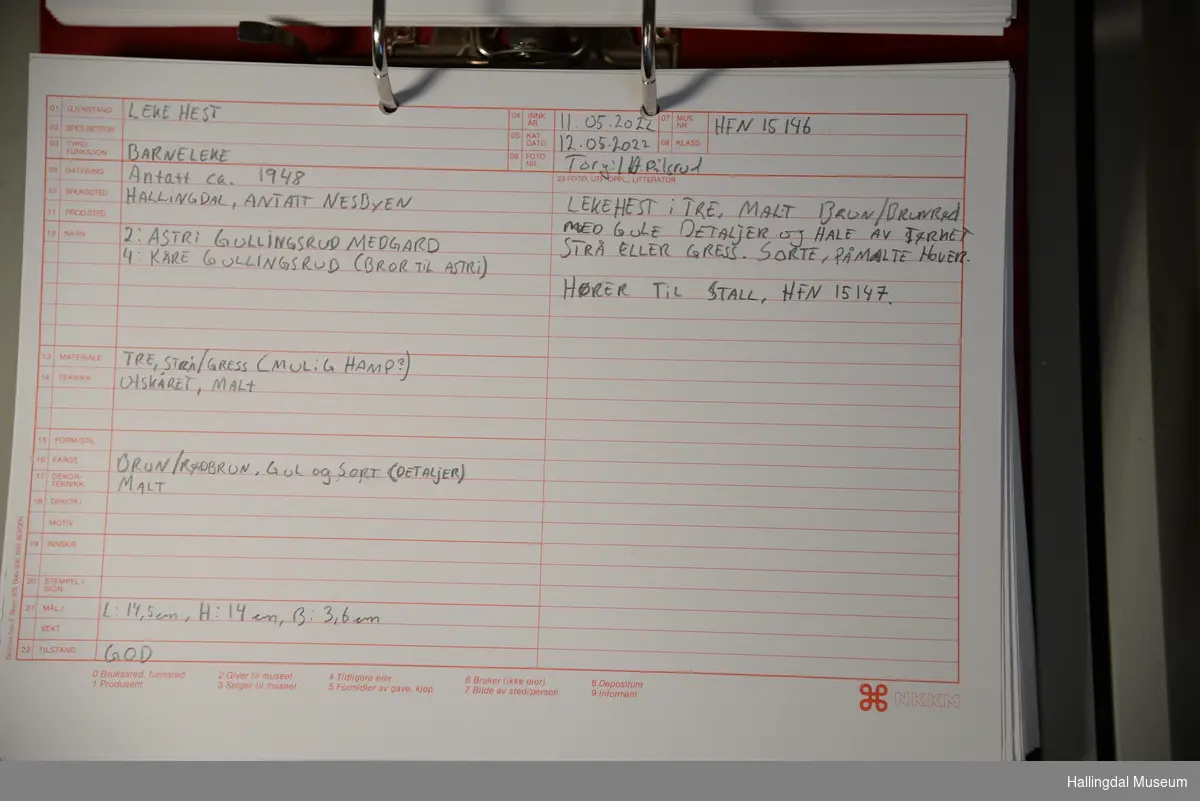 01 GJENSTAND LEKE HEST
04 INNK ÅR 11.05.2022 07 MUS NR HFN 15146
02 SPES.BETEGN
05 KAT DATO 12.05.2022 08 KLASS
03 TYPE/ FUNKSJON BARNELEKE
06 FOTO NR Torgil A Pilsrud
09 DATERING Antatt ca. 1948
10 BRUKSSTED HALLINGDAL, ANTATT NESBYEN
11 PROD.STED
12 NAVN 2: ASTRI GULLINGSRUD MEDGARD
4: KÅRE GULLINGSRUD (BROR TIL ASTRI)
13 MATERIALE TRE, STRÅ/GRESS (MULIG HAMP?)
14 TEKNIKK UTSKÅRET, MALT
15 FORM/STIL
16 FARGE BRUN/RØDBRUN, GUL og SORT (DETALJER)
17 DEKOR-TEKNIKK MALT
18 DEKOR /
MOTIV
19 INNSKR
20 STEMPEL / SIGN
21 MÅL / L: 14,5cm, H: 14 cm, B: 3,6 cm
VEKT
22 TILSTAND GOD
23 FOTO, UTF.OPPL., LITTERATUR
LEKEHEST i TRE, MALT BRUN/BRUNRØD
MED GULE DETALJER og HALE AV TØRKET
STRÅ ELLER GRESS. SORTE, PÅMALTE HOVER.
HØRER TIL STALL, HFN 15147.
0 Brukssted, funnsted 2 Giver til museet 4 Tidligere eier 6 Bruker (ikke eier) 8 Depositum
1 Produsent 3 Selger til museet 5 Formidler av gave, kjøp. 7 Bilde av sted/person 9 Informant
NKKM
Hallingdal Museum